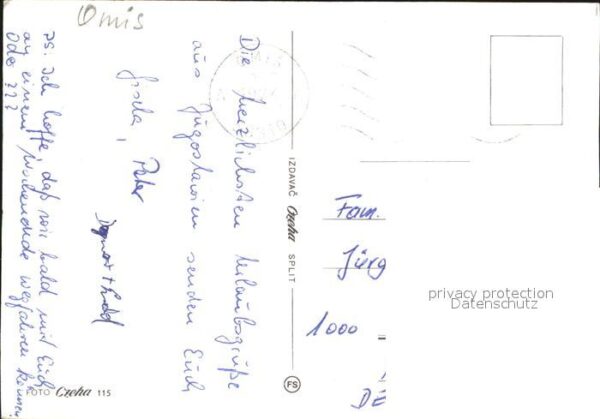 Omis
Die herzlichsten Urlaubsgrüße
aus Jugoslawien senden Euch
Gisela, Peter
Dagmar +
PS. Ich hoffe, daß wir bald mit Euch
an einem Wochenende wegfahren können
Oder ???
FOTO Creha 115
IZDAVAČ Creha SPLIT
FS
Fam.
Jürg
1000
DE
privacy protection
Datenschutz